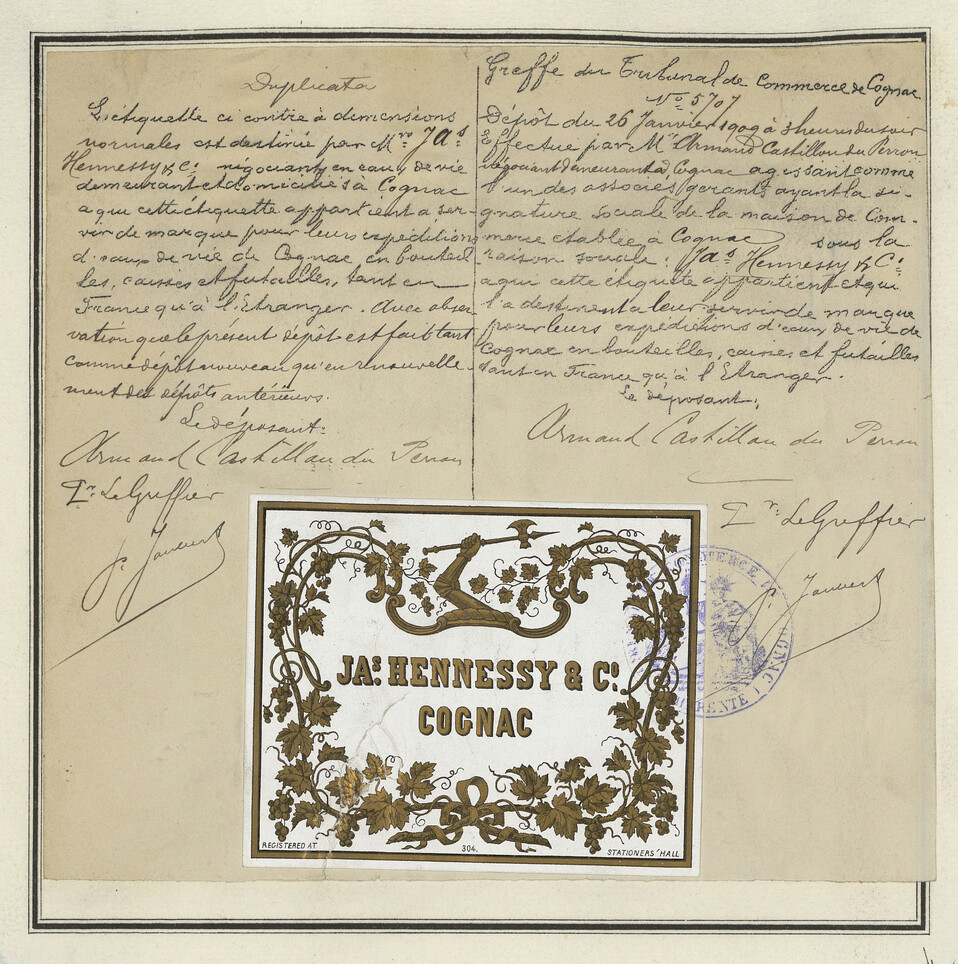 Duplicata
L'étiquette ci contre à dimensions
normales est destinée par Mrs Jas
Hennessy & Co négociants en eaux de vie
demeurant et domiciliés à Cognac
a qui cette étiquette appartient a ser-
vir de marque pour leurs expéditions
d'eaux de vie de Cognac, en bouteil
les, caisses et futailles, tant en
France qu'à l'Etranger. Avec obser-
vation que le présent dépôt est fait tant
comme dépôt nouveau qu'en renouvelle-
ment des dépôts antérieurs.
Le déposant:
Armand Castillon du Perron
Pr. Le Greffier
Greffe du Tribunal de Commerce de Cognac
No 5707
Dépôt du 26 Janvier 1909 à 3 heures du soir
Effectué par Mr Armand Castillon du Perron
négociant demeurant à Cognac agissant comme
l'un des associés gérants ayant la si-
gnature sociale de la maison de Com-
merce établie à Cognac sous la
raison sociale: Jas Hennessy & Co
a qui cette étiquette appartient et qui
l'a destinent a leur servir de marque
pour leurs expéditions d'eaux de vie de
Cognac en bouteilles, caisses et futailles
tant en France qu'à l'Etranger.
Le déposant,
Armand Castillon du Perron
Pr. Le Greffier
JAS. HENNESSY & CO.
COGNAC
REGISTERED AT
304.
STATIONERS' HALL
COMMERCE
COGNAC